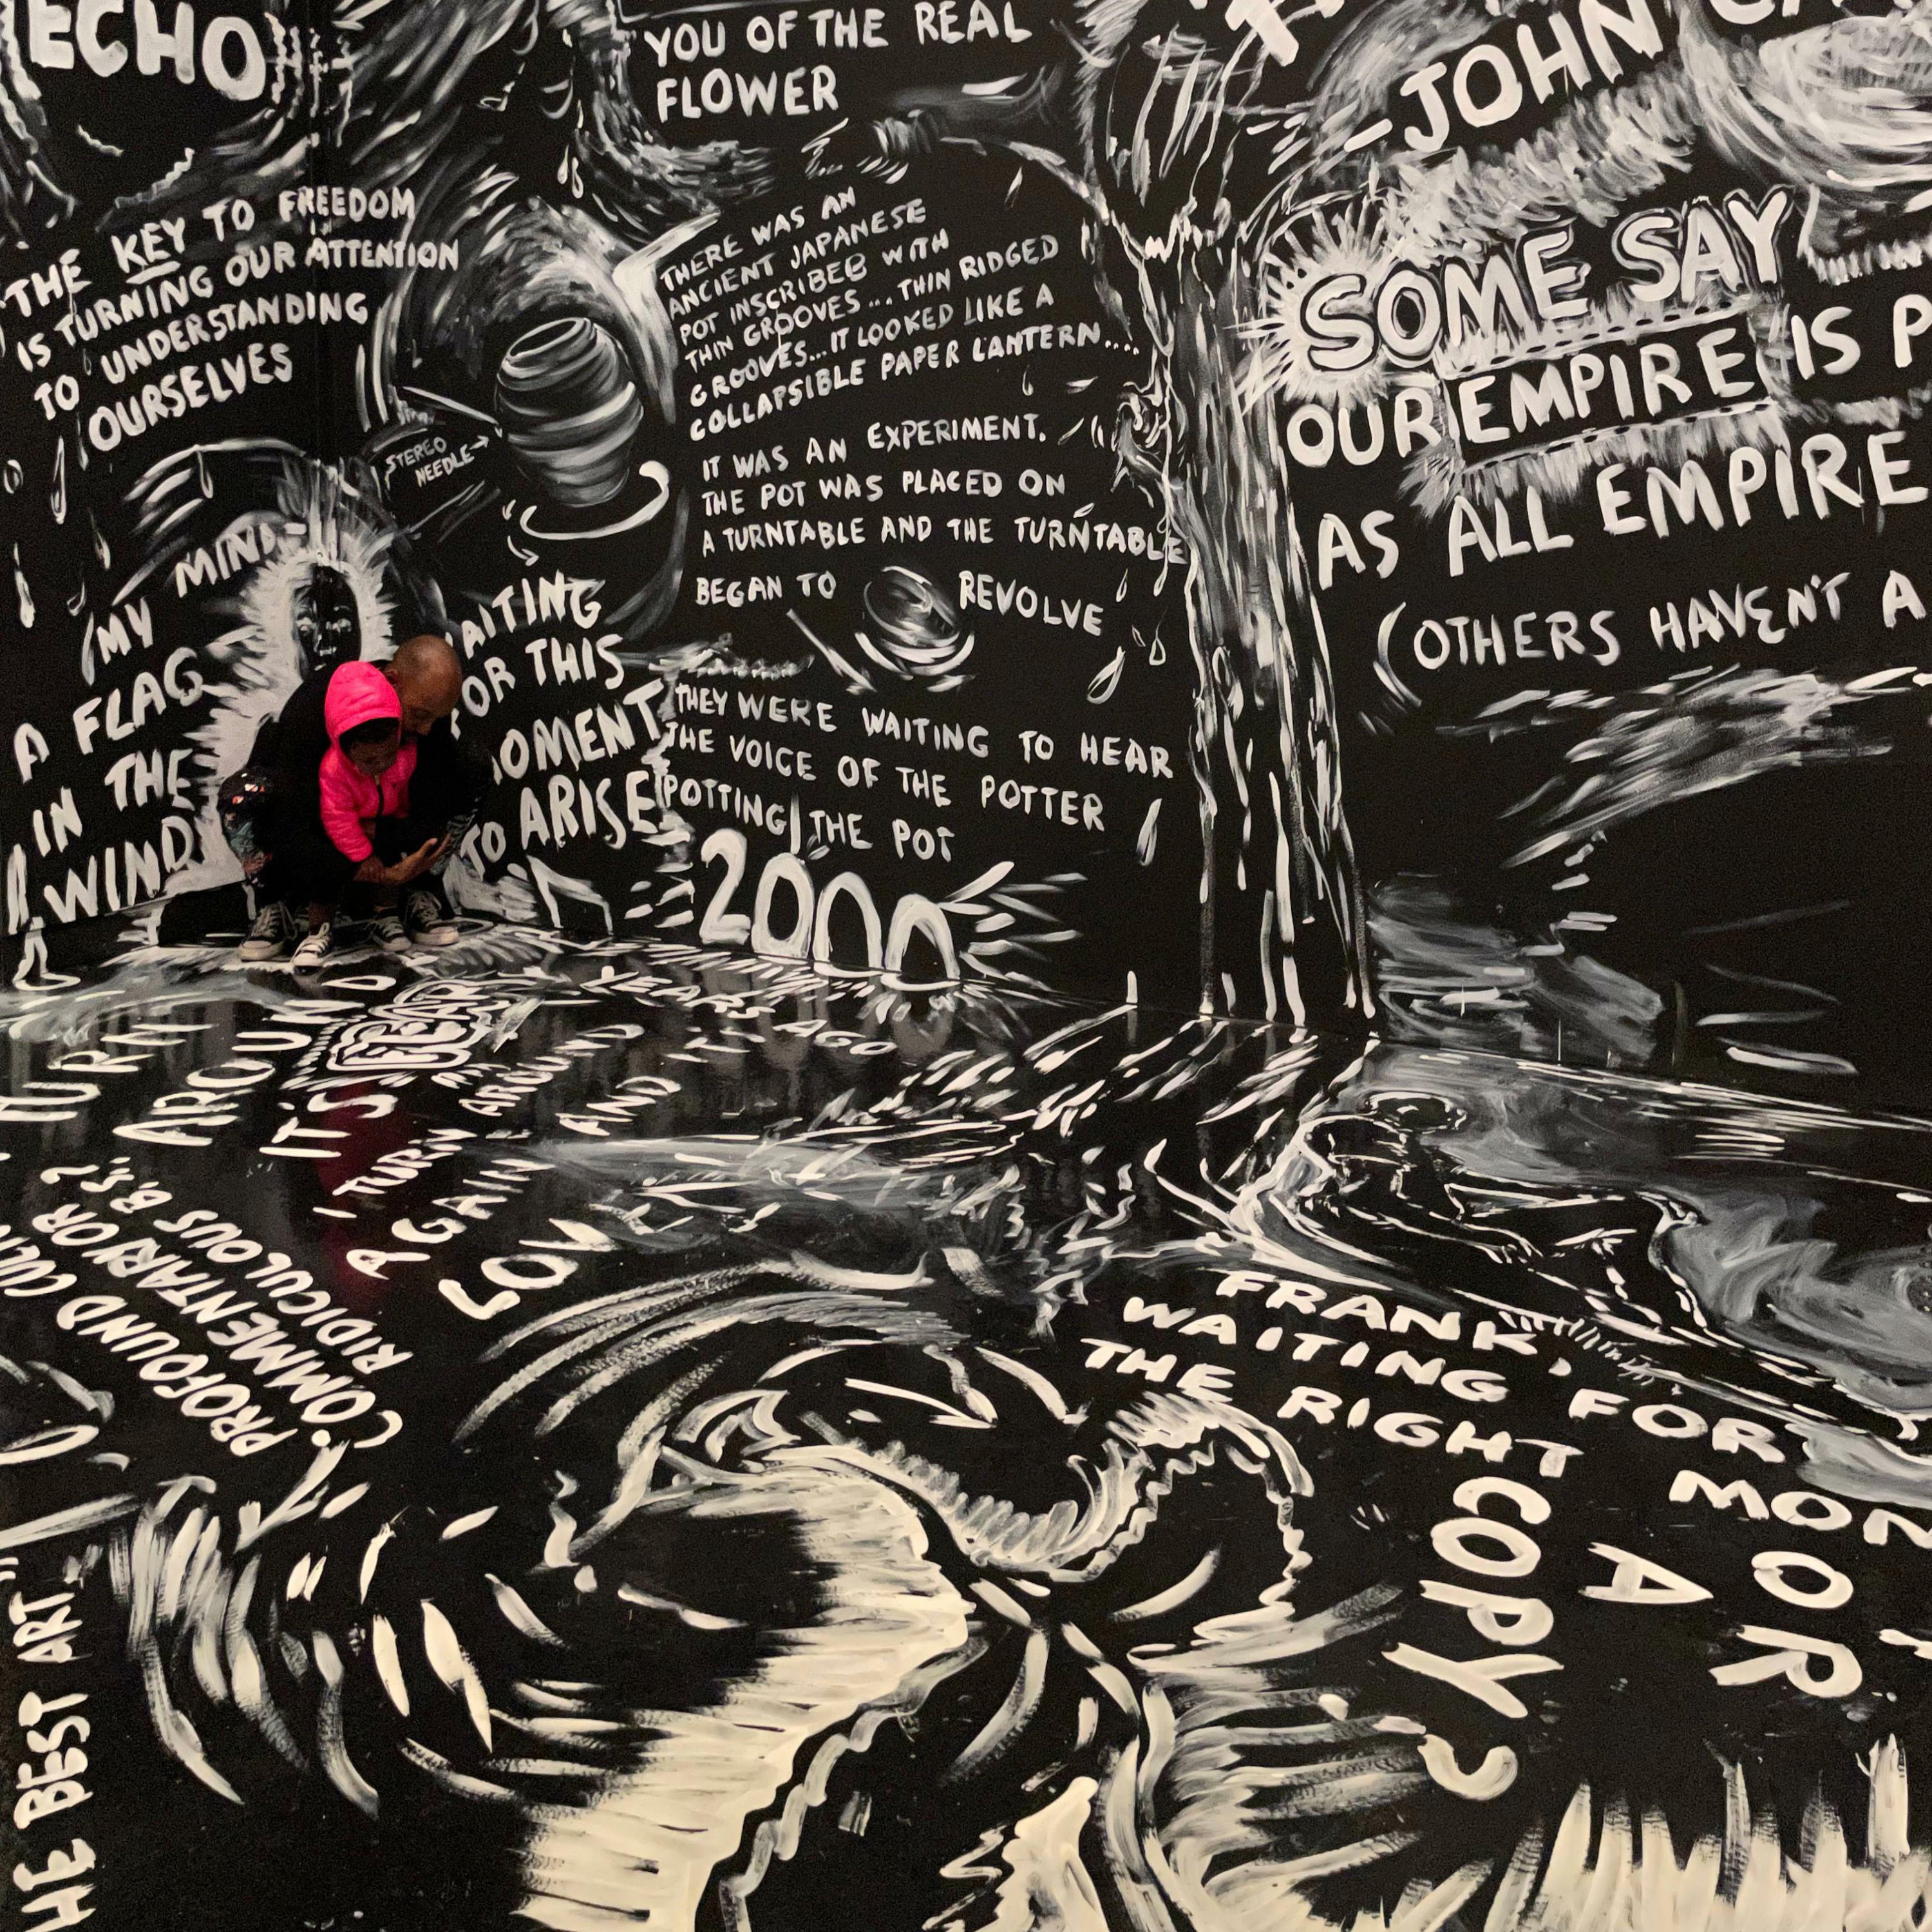 ECHO
THE KEY TO FREEDOM
IS TURNING OUR ATTENTION
TO UNDERSTANDING
OURSELVES
(MY MIND-
A FLAG
IN THE
WIND
YOU OF THE REAL
FLOWER
THERE WAS AN
ANCIENT JAPANESE
POT INSCRIBED WITH
THIN GROOVES... THIN RIDGED
GROOVES... IT LOOKED LIKE A
COLLAPSIBLE PAPER LANTERN....
STEREO
NEEDLE→
IT WAS AN EXPERIMENT.
THE POT WAS PLACED ON
A TURNTABLE AND THE TURNTABLE
BEGAN TO REVOLVE
THEY WERE WAITING TO HEAR
THE VOICE OF THE POTTER
POTTING THE POT
AITING
FOR THIS
MOMENT
TO ARISE
2000
YEARS AGO
-JOHN
SOME SAY
OUR EMPIRE IS P
AS ALL EMPIRE
(OTHERS HAVEN'T A
I TURN
AROUND
IT'S FEAR
I TURN AROUND
AGAIN AND IT'S
LOVE
PROFOUND CUL
COMMENTARY OR ?
RIDICULOUS B.S.
HE BEST ART"
FRANK,
WAITING FOR
THE RIGHT MON
COPY?
A
OR